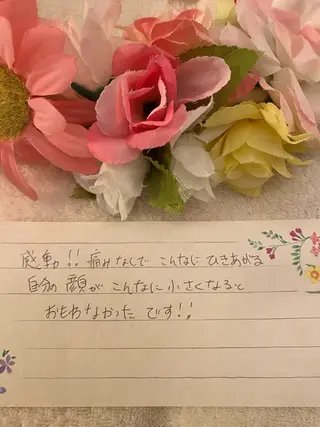 感動!! 痛みなしで こんなに ひきあがる
自分の 顔が こんなに 小さくなると
おもわなかった です!!